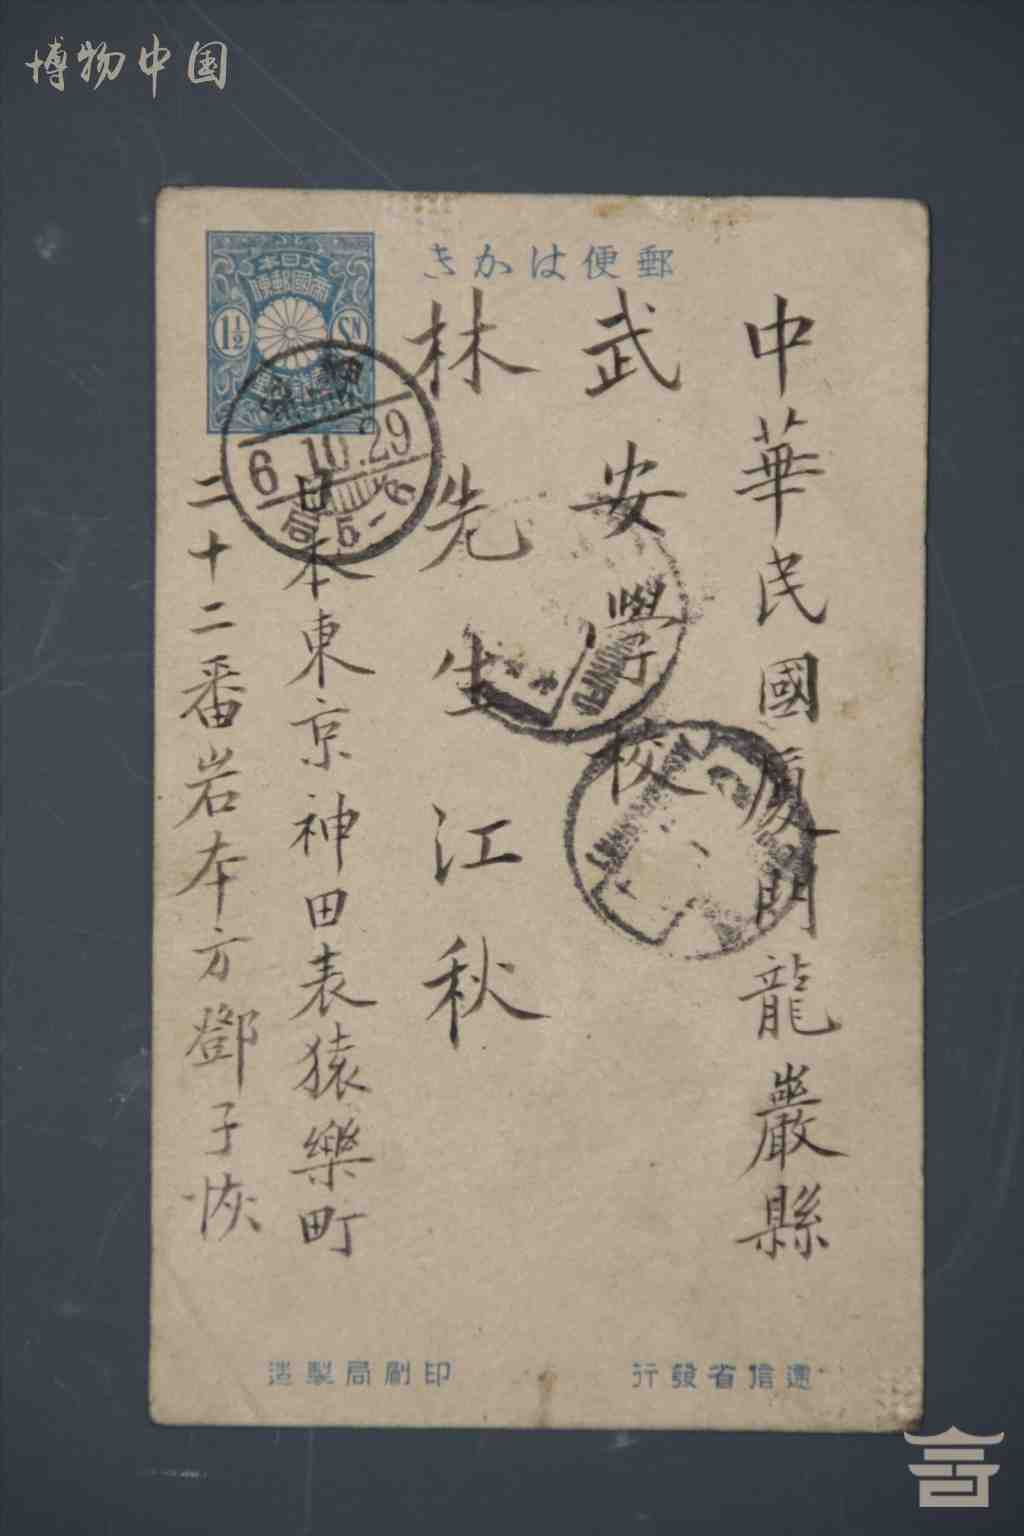 博物中国
郵便はかき
大日本
帝國郵便
1½
SN
神田
6 10.29
局 5-6
中華民國厦門龍巖縣
武安學校
林先生江秋
日本東京神田表猿樂町
二十二番岩本方鄧子恢
遞信省發行
印刷局製造